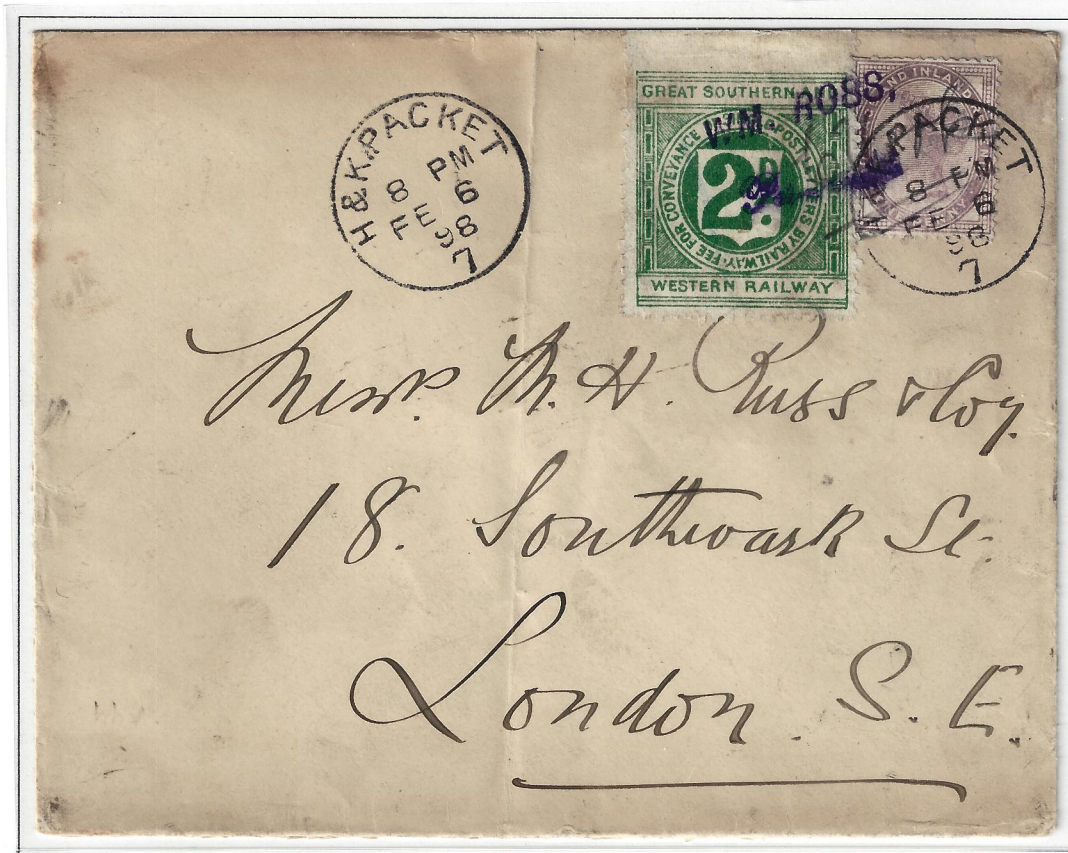 H&K.PACKET
8 PM
FE 6
98
7
GREAT SOUTHERN AND
WM ROSS,
FEE FOR CONVEYANCE OF POST LETTERS BY RAILWAY
2D.
WESTERN RAILWAY
AND INLAND
H&K.PACKET
8 PM
FE 6
98
7
Messrs. M. H. Russ & Coy.
18. Southwark St.
London. S. E.